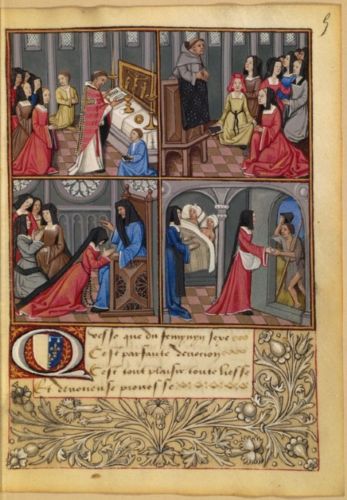 5
Qvesse que du femynyn sexe
Cest parfaite deuocion
Cest tout plaisir toute liesse
Et prouesse